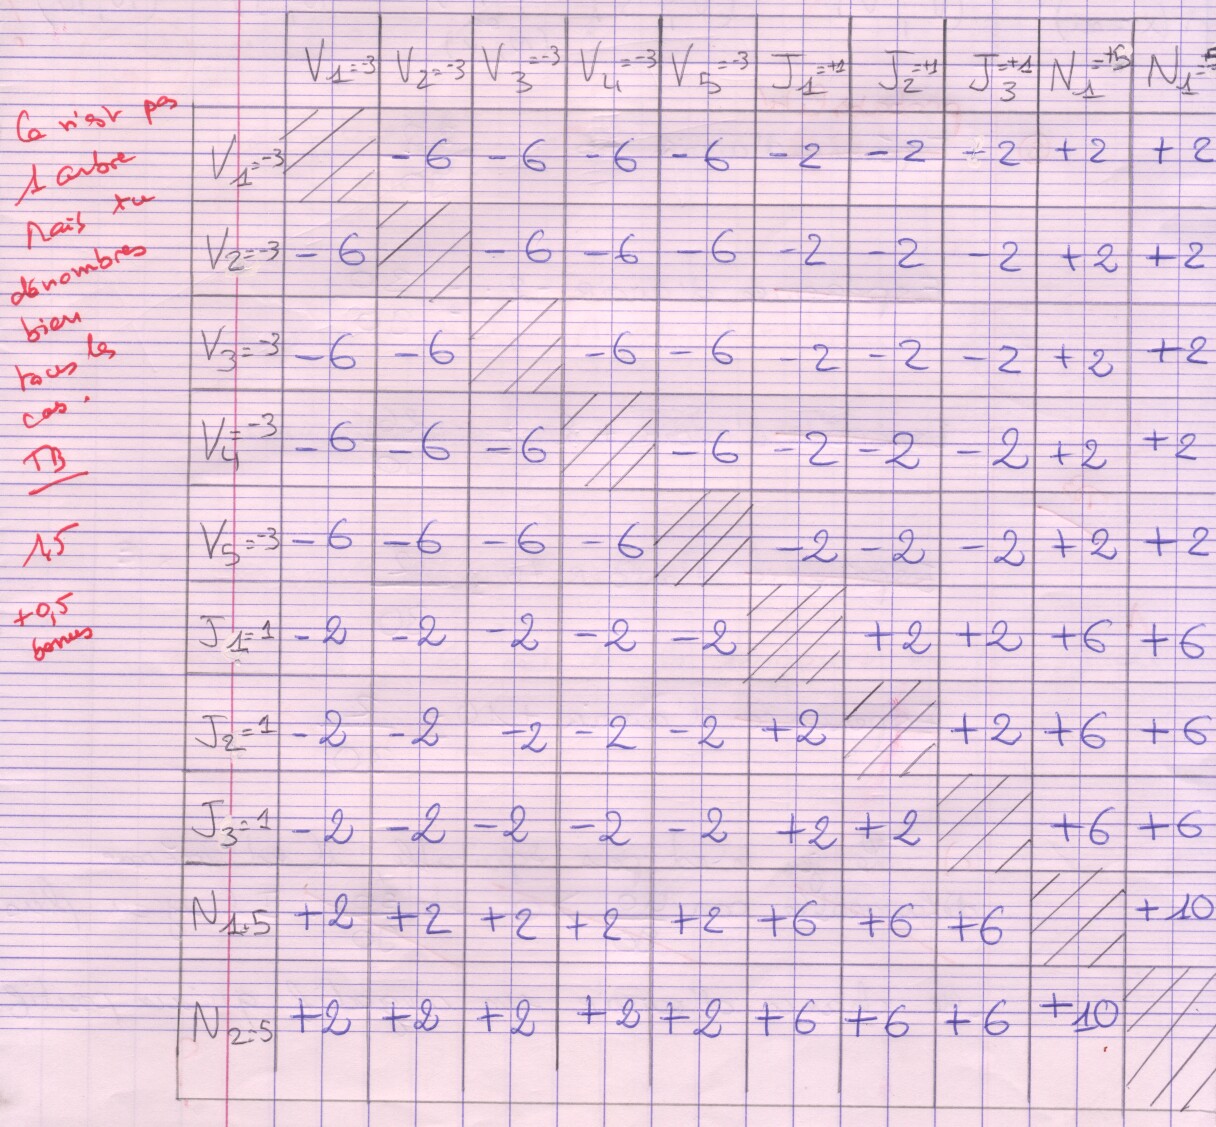 V1=-3 V2=-3 V3=-3 V4=-3 V5=-3 J1=+1 J2=+1 J3=+1 N1=+5 N1=+5
V1=-3 -6 -6 -6 -6 -2 -2 -2 +2 +2
V2=-3 -6 -6 -6 -6 -2 -2 -2 +2 +2
V3=-3 -6 -6 -6 -6 -2 -2 -2 +2 +2
V4=-3 -6 -6 -6 -6 -2 -2 -2 +2 +2
V5=-3 -6 -6 -6 -6 -2 -2 -2 +2 +2
J1=1 -2 -2 -2 -2 -2 +2 +2 +6 +6
J2=1 -2 -2 -2 -2 -2 +2 +2 +6 +6
J3=1 -2 -2 -2 -2 -2 +2 +2 +6 +6
N1=5 +2 +2 +2 +2 +2 +6 +6 +6 +10
N2=5 +2 +2 +2 +2 +2 +6 +6 +6 +10
Ce n'est pas
1 arbre
Mais tu
dénombres
bien
tous les
cas.
TB
1,5
+0,5
bonus